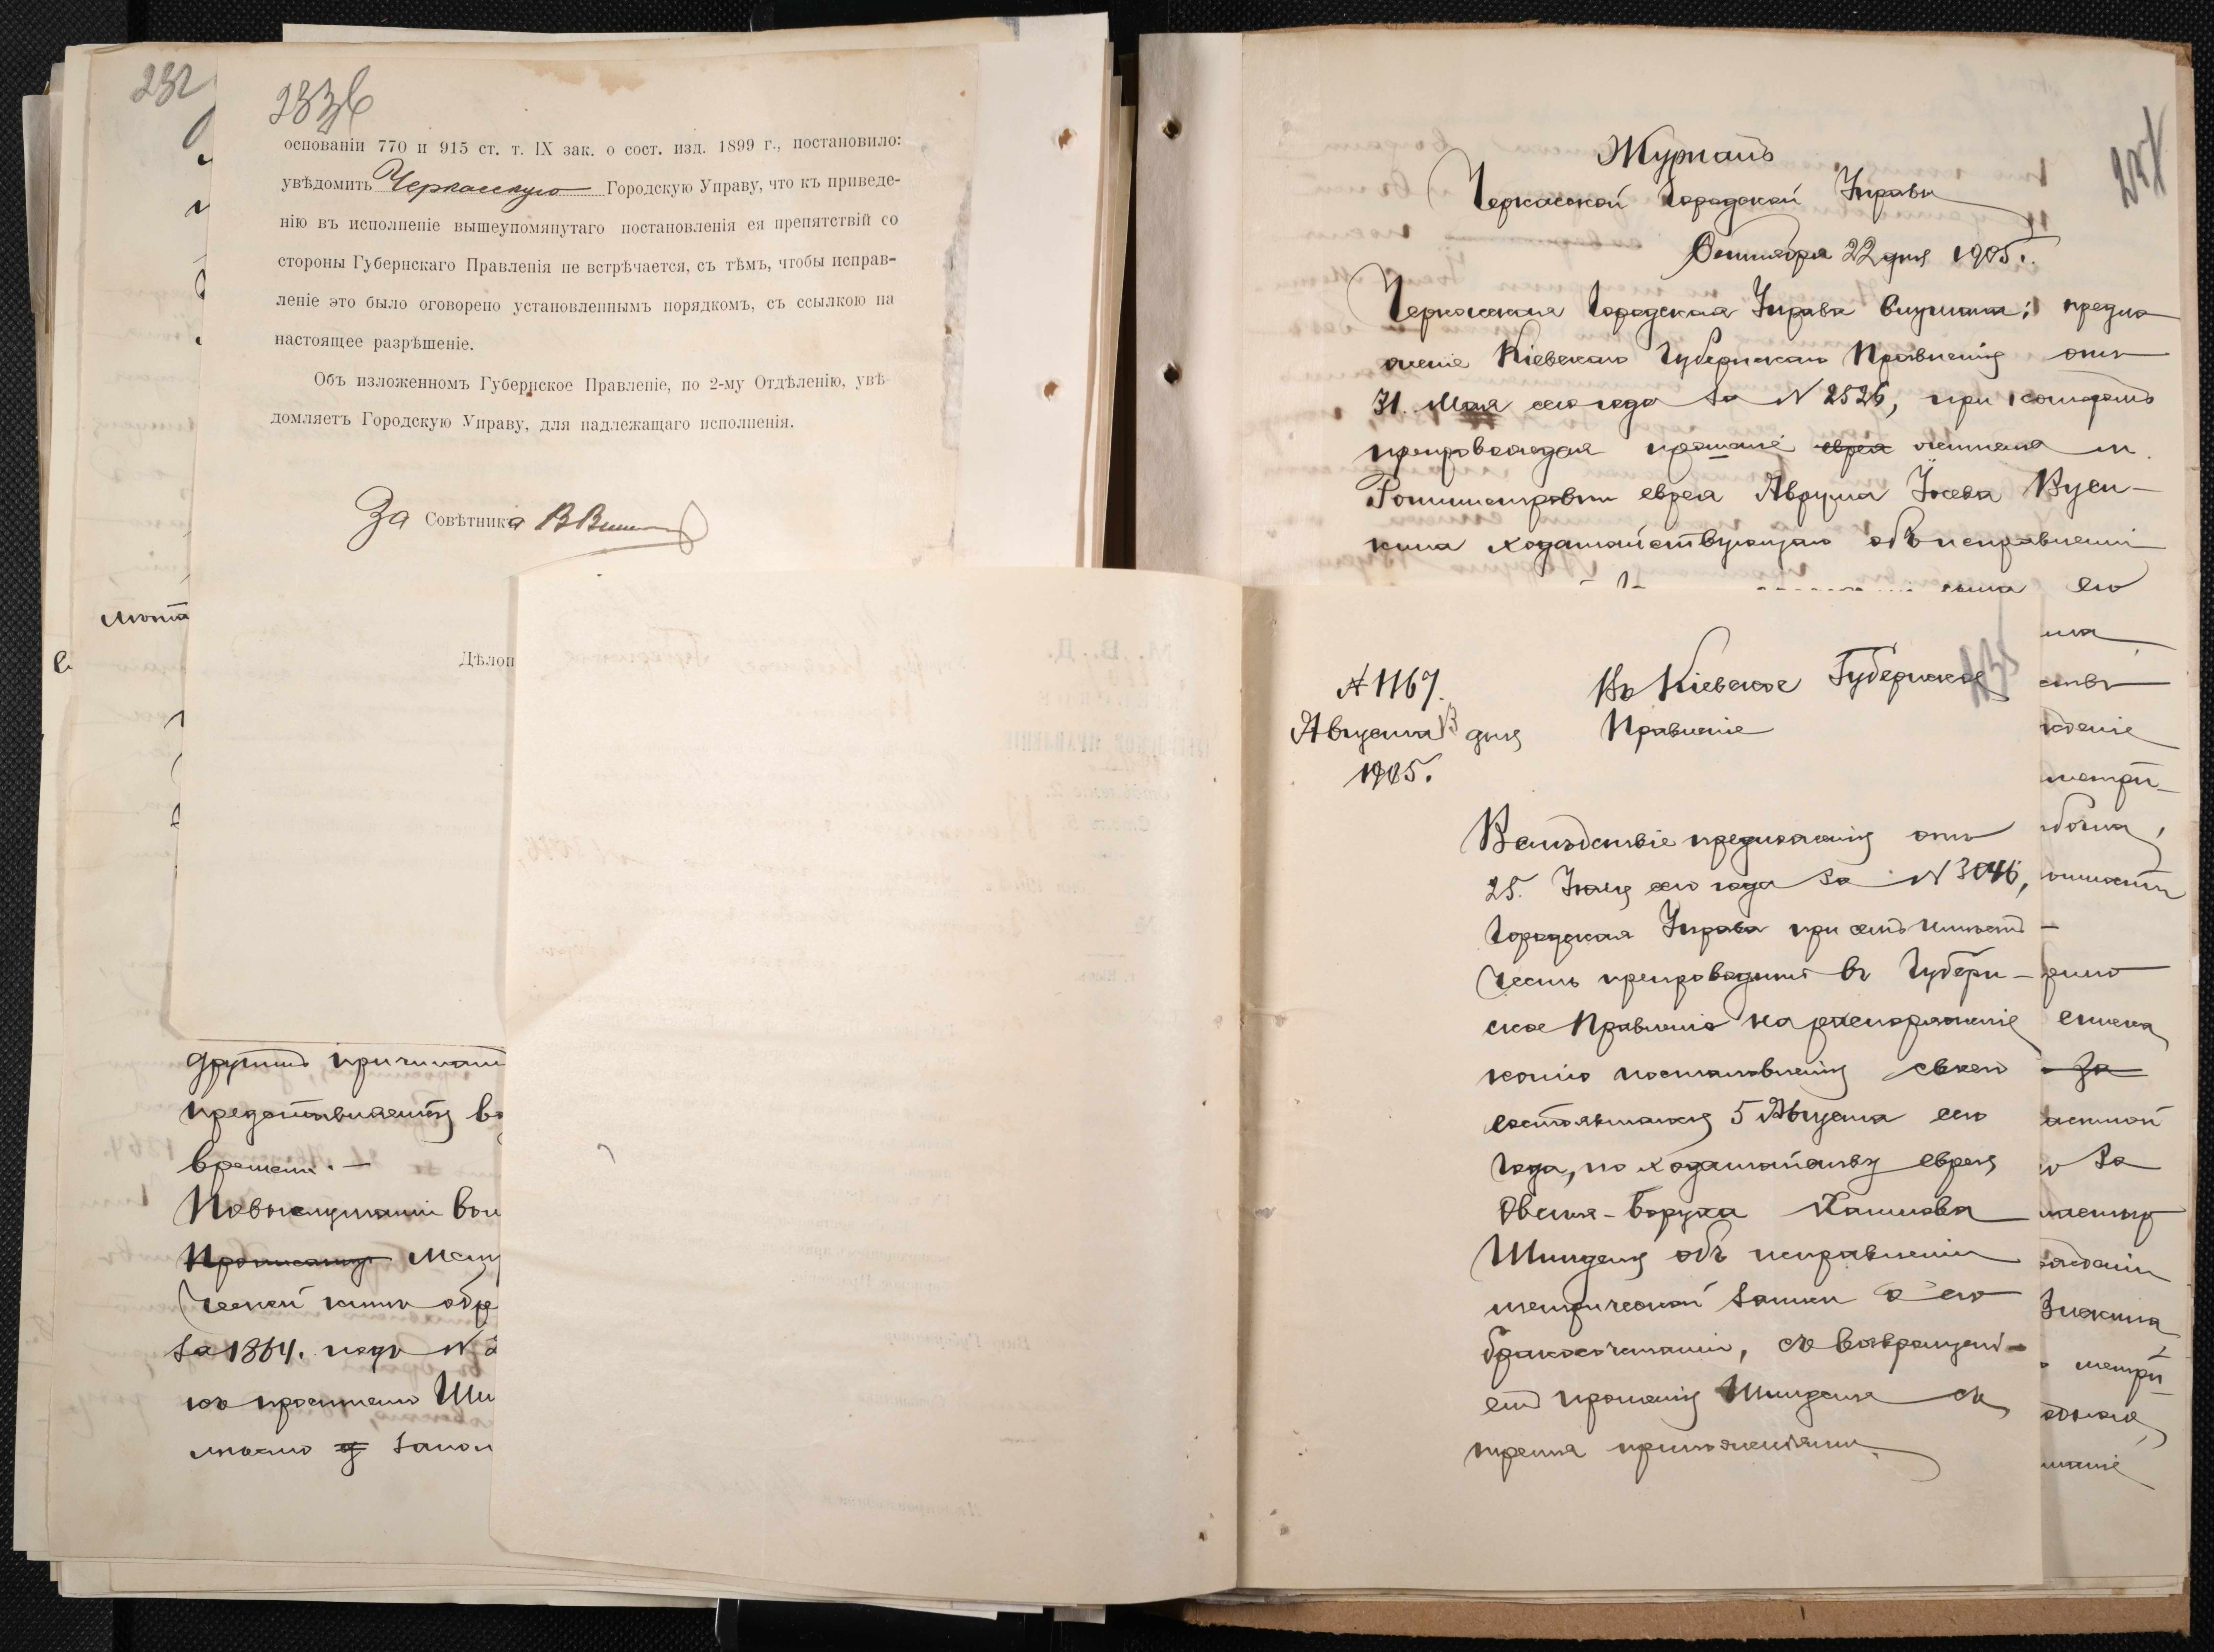 232
233б
основаніи 770 и 915 ст. т. IX зак. о сост. изд. 1899 г., постановило:
увѣдомить Черкасскую Городскую Управу, что къ приведе-
нію въ исполненіе вышеупомянутаго постановленія ея препятствій со
стороны Губернскаго Правленія не встрѣчается, съ тѣмъ, чтобы исправ-
леніе это было оговорено установленнымъ порядкомъ, съ ссылкою на
настоящее разрѣшеніе.
Объ изложенномъ Губернское Правленіе, по 2-му Отдѣленію, увѣ-
домляетъ Городскую Управу, для надлежащаго исполненія.
За Совѣтника
Дѣлоп
другимъ причинамъ
предоставляется
времени. —
Прописанную
ческой книги
за 1864. подъ N
Журналъ
Черкасской Городской Управы
Сентября 22 дня 1905 г.
Черкасская Городская Управа слушала: предло
женіе Кіевскаго Губернскаго Правленія отъ
31. Мая сего года за N 2526, при которомъ
препровождая прошеніе еврея жителя м.
Ротмистровки еврея Аврума Іосева
кина ходатайствующаго объ исправленіи
сына его
N 1167.
Августа 13 дня
1905.
Въ Кіевское Губернское
Правленіе
Вслѣдствіе предложенія отъ
25. Іюля сего года за N 3046,
Городская Управа при семъ имѣетъ
честь препроводить въ Губерн-
ское Правленіе на распоряженіе
копію постановленія своего
состоявшагося 5 Августа сего
года, по ходатайству еврея
Овсея-Боруха Хаимова
Шинделя объ исправленіи
метрической записи о его
бракосочетаніи, съ возвращені-
емъ прошенія Шинделя съ
тремя приложеніями.